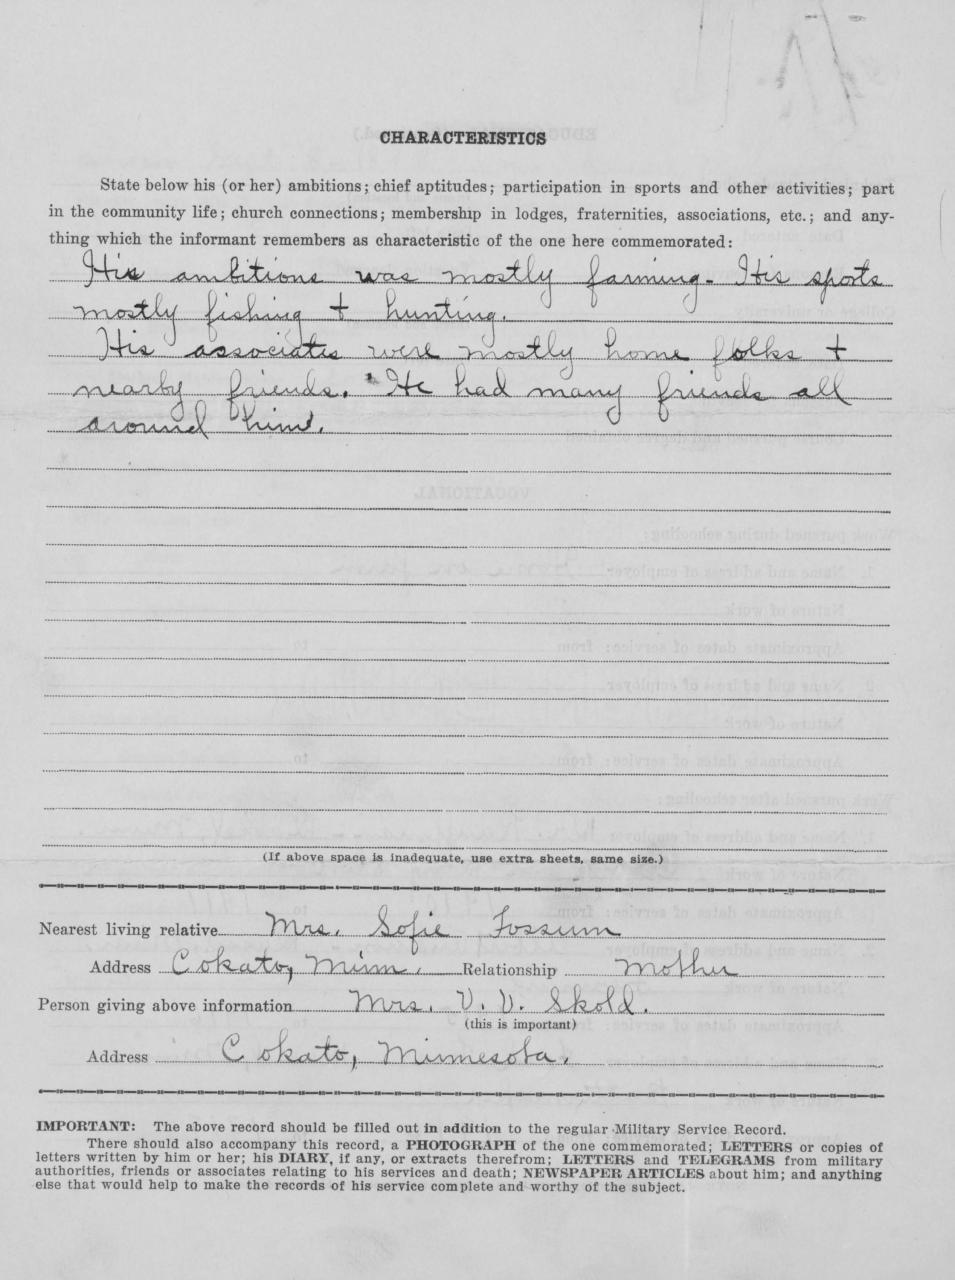 CHARACTERISTICS
State below his (or her) ambitions; chief aptitudes; participation in sports and other activities; part
in the community life; church connections; membership in lodges, fraternities, associations, etc.; and any-
thing which the informant remembers as characteristic of the one here commemorated:
His ambitions was mostly farming. His sports
mostly fishing + hunting.
His associates were mostly home folks +
nearby friends. He had many friends all
around him.
(If above space is inadequate, use extra sheets, same size.)
Nearest living relative Mrs. Sofie Fossum
Address Cokato, Minn. Relationship Mother
Person giving above information Mrs. V. V. Skold.
(this is important)
Address Cokato, Minnesota.
IMPORTANT: The above record should be filled out in addition to the regular Military Service Record.
There should also accompany this record, a PHOTOGRAPH of the one commemorated; LETTERS or copies of
letters written by him or her; his DIARY, if any, or extracts therefrom; LETTERS and TELEGRAMS from military
authorities, friends or associates relating to his services and death; NEWSPAPER ARTICLES about him; and anything
else that would help to make the records of his service complete and worthy of the subject.